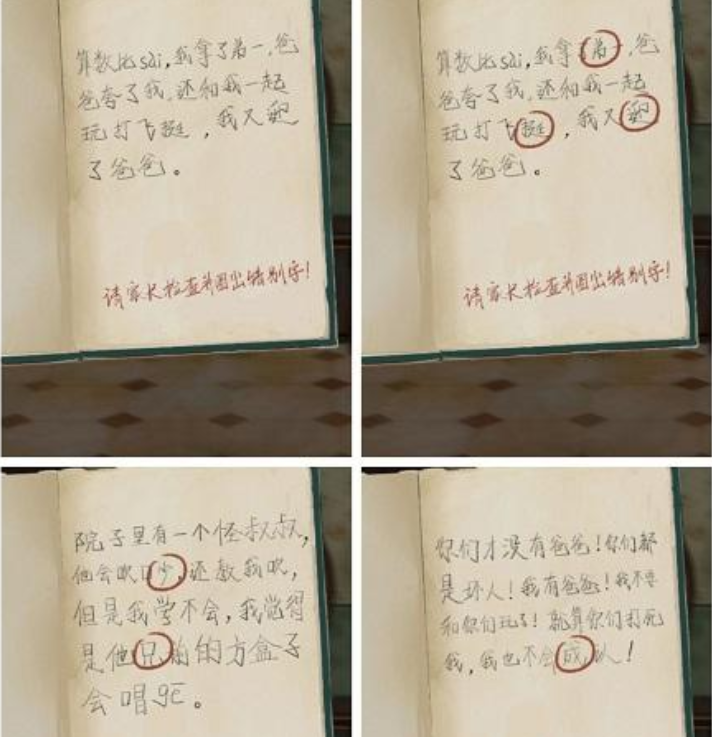 算数比sài,我拿了弟一,爸
爸夸了我,还和我一起
玩打飞挺,我又
了爸爸。
请家长检查并圈出错别字!
算数比sài,我拿了弟一,爸
爸夸了我,还和我一起
玩打飞挺,我又
了爸爸。
请家长检查并圈出错别字!
院子里有一个怪叔叔,
他会吹口少,还教我吹,
但是我学不会,我觉得
是他兄前的方盒子
会唱gē。
你们才没有爸爸!你们都
是坏人!我有爸爸!我不要
和你们玩了!就算你们打死
我,我也不会成认!